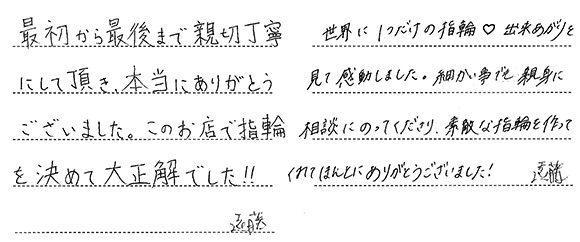 最初から最後まで親切丁寧
にして頂き、本当にありがとう
ございました。このお店で指輪
を決めて大正解でした!!
遠藤
世界に1つだけの指輪♡出来あがりを
見て感動しました。細かい事でも親身に
相談にのってくださり、素敵な指輪を作って
くれてほんとにありがとうございました!
遠藤